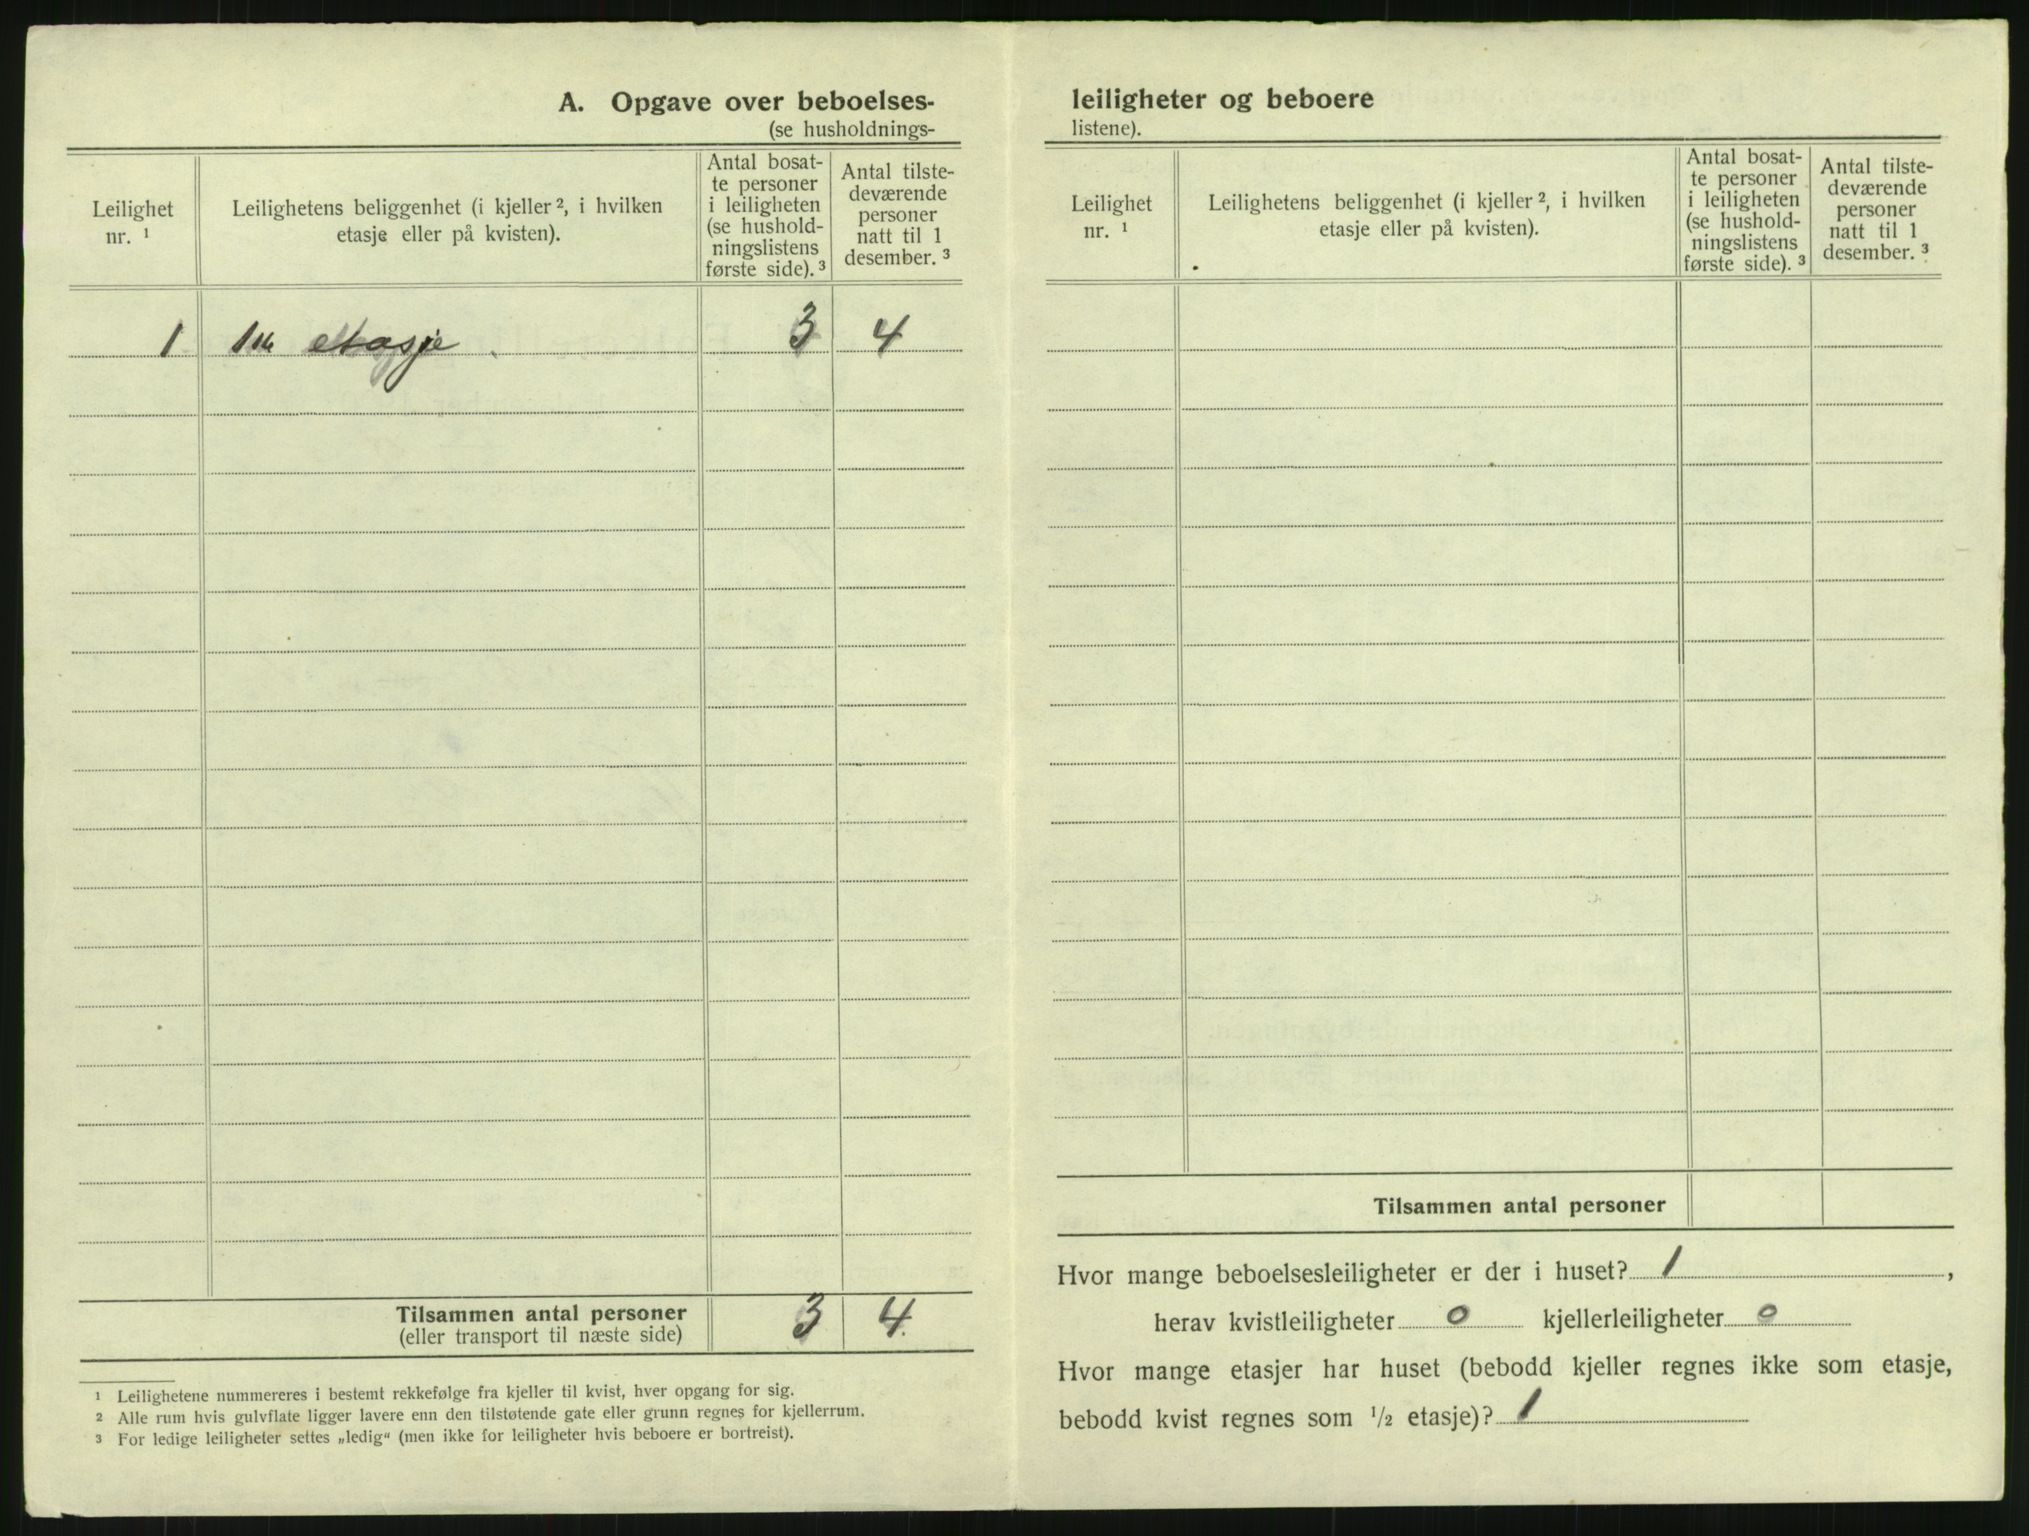 A. Opgave over beboelses-
(se husholdnings-
Leilighet
nr. ¹
Leilighetens beliggenhet (i kjeller ², i hvilken
etasje eller på kvisten).
Antal bosat-
te personer
i leiligheten
(se hushold-
ningslistens
første side). ³
Antal tilste-
deværende
personer
natt til 1
desember. ³
1 1ste etasje. 3 4
Tilsammen antal personer 3 4.
(eller transport til næste side)
¹ Leilighetene nummereres i bestemt rekkefølge fra kjeller til kvist, hver opgang for sig.
² Alle rum hvis gulvflate ligger lavere enn den tilstøtende gate eller grunn regnes for kjellerrum.
³ For ledige leiligheter settes „ledig“ (men ikke for leiligheter hvis beboere er bortreist).
leiligheter og beboere
listene).
Leilighet
nr. ¹
Leilighetens beliggenhet (i kjeller ², i hvilken
etasje eller på kvisten).
Antal bosat-
te personer
i leiligheten
(se hushold-
ningslistens
første side). ³
Antal tilste-
deværende
personer
natt til 1
desember. ³
Tilsammen antal personer
Hvor mange beboelsesleiligheter er der i huset? 1,
herav kvistleiligheter 0 kjellerleiligheter 0
Hvor mange etasjer har huset (bebodd kjeller regnes ikke som etasje,
bebodd kvist regnes som ½ etasje)? 1